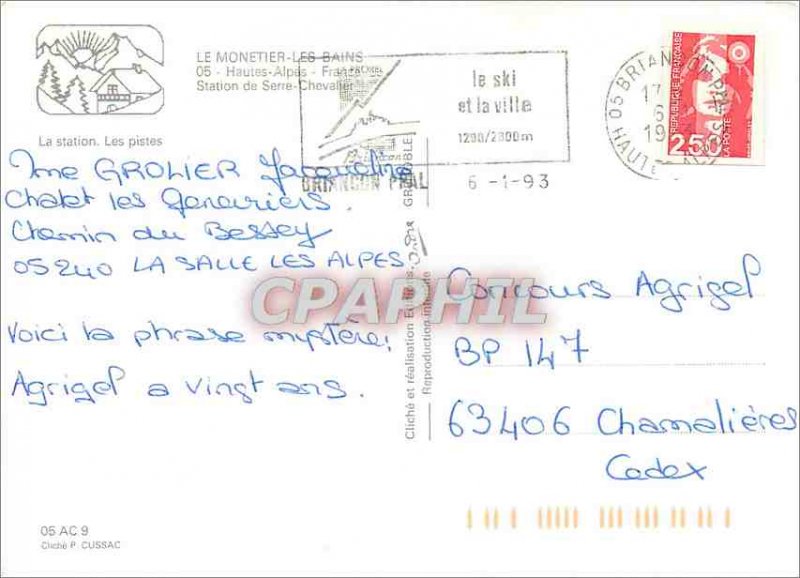 LE MONETIER-LES-BAINS
05 - Hautes-Alpes - France
Station de Serre-Chevalier
La station. Les pistes
le ski
et la ville
1200/2800m
BRIANCON PPAL
6-1-93
05 BRIANCON PPAL
HAUTES
17
6
19
REPUBLIQUE FRANÇAISE
2,50
LA POSTE
Mme GROLIER Jacqueline
Chalet les Genevriers.
Chemin du Bessey
05240 LA SALLE LES ALPES
Voici la phrase mystère:
Agrigel a vingt ans.
Cliché et réalisation Editions GRENOBLE
Reproduction interdite
CPAPHIL
Concours Agrigel
BP 147
63406 Chamalières
Cedex
05 AC 9
Cliché P. CUSSAC